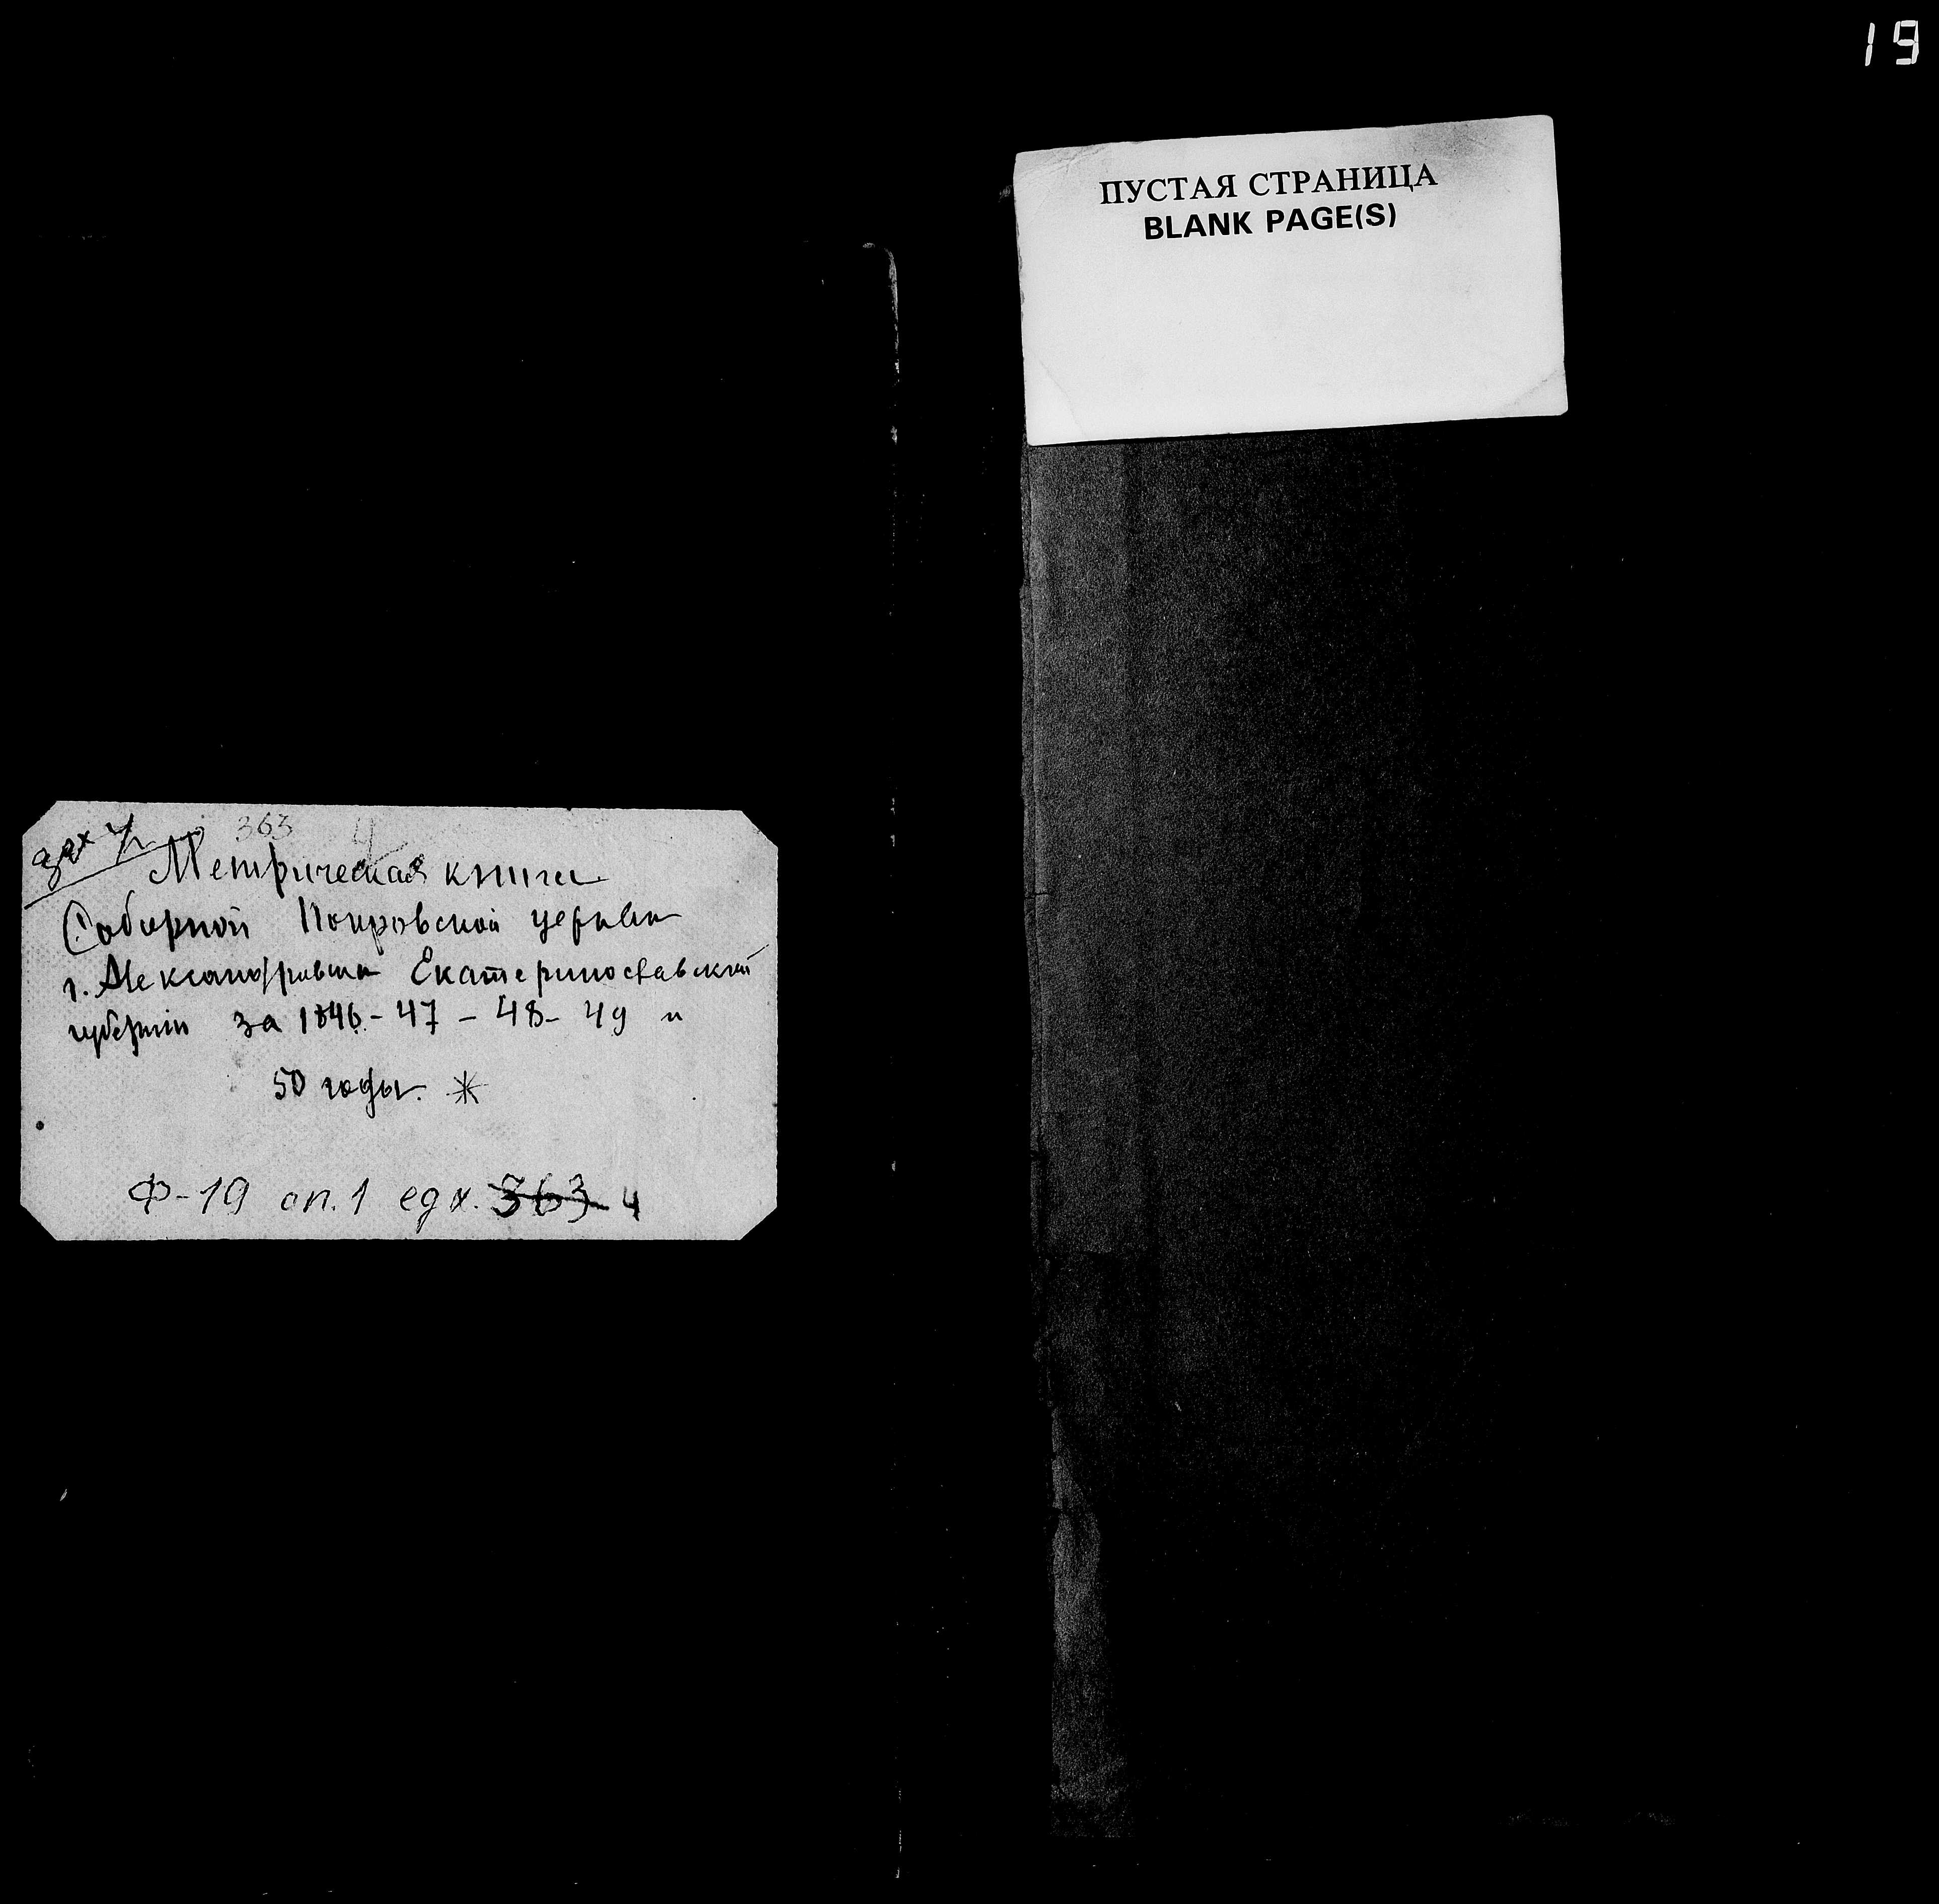 363 4
Метрическая книга
Соборной Покровской церкви
г. Александровска Екатеринославской
губернии за 1846-47-48-49 и
50 годы. *
Ф-19 оп.1 едх. 363 4
19
ПУСТАЯ СТРАНИЦА
BLANK PAGE(S)